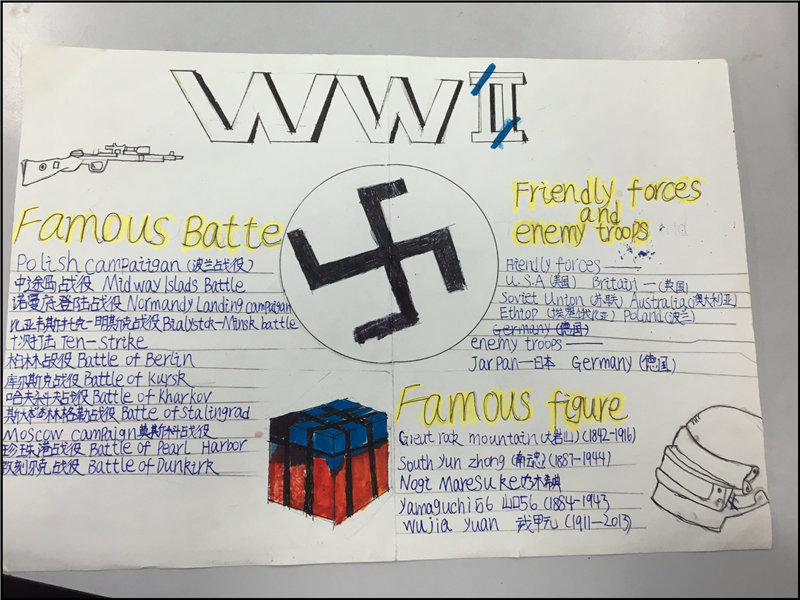 WW II
Famous Batte
Polish campaitigan (波兰战役)
中途岛战役 Midway Islads Battle
诺曼底登陆战役 Normandy Landing campaigan
明斯克战役 Bialystok-Minsk battle
十次打击 Ten-strike
柏林战役 Battle of Berlin
库尔斯克战役 Battle of Kursk
哈尔科夫战役 Battle of Kharkov
斯大林格勒战役 Batte of Stalingrad
Moscow campaign 莫斯科战役
珍珠港战役 Battle of Pearl Harbor
敦刻尔克战役 Battle of Dunkirk
Friendly forces
and
enemy troops
Friendly forces ——
U.S.A (美国) Britain — (英国)
Soviet Union (苏联) Australia (澳大利亚)
Ethiop Poland (波兰)
Germany (德国)
enemy troops ——
Jarpan — 日本 Germany (德国)
Famous figure
Great rock mountain (大岩山) (1842-1916)
South yun zhong (南云) (1887-1944)
Nogi Maresuke 乃木希典
Yamaguchi 56 山口56 (1884-1943)
Wujia yuan (1911-2013)